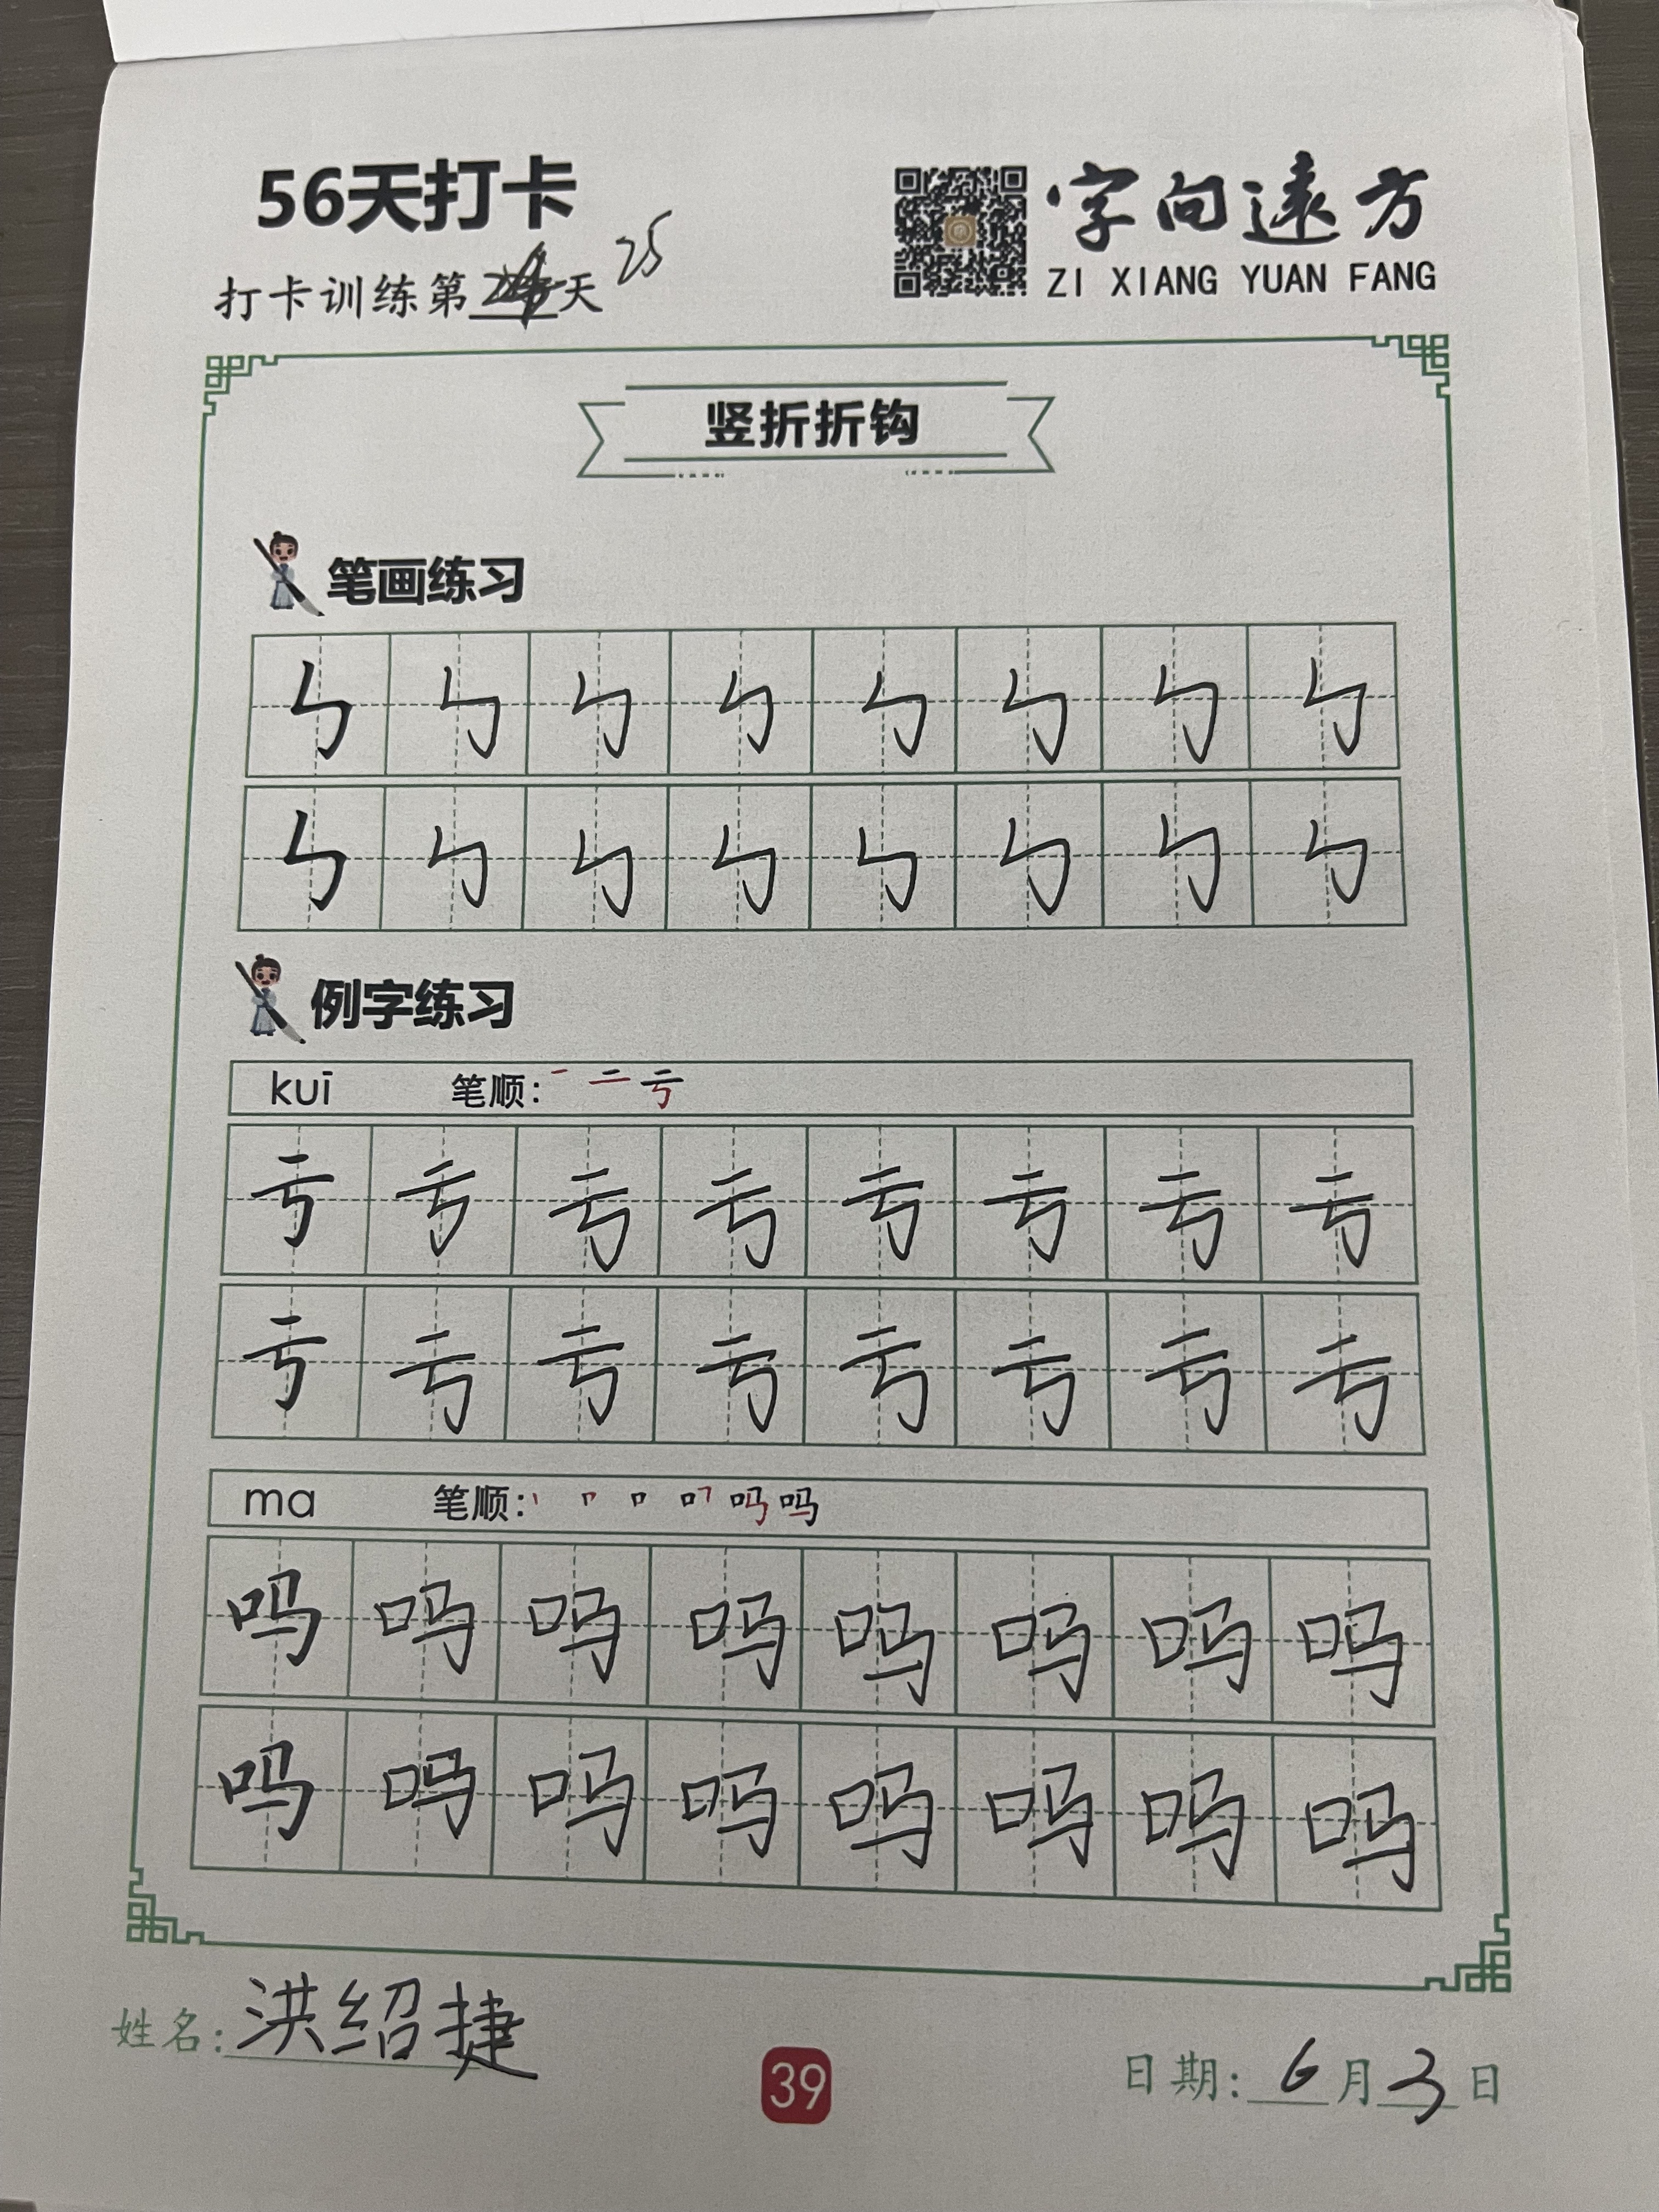 56天打卡
字向遠方
ZI XIANG YUAN FANG
打卡训练第天 25
竖折折钩
笔画练习
㇉ ㇉ ㇉ ㇉ ㇉ ㇉ ㇉ ㇉
㇉ ㇉ ㇉ ㇉ ㇉ ㇉ ㇉ ㇉
例字练习
kuī 笔顺: 一 二 亏
亏 亏 亏 亏 亏 亏 亏 亏
亏 亏 亏 亏 亏 亏 亏 亏
ma 笔顺: 吗
吗 吗 吗 吗 吗 吗 吗 吗
吗 吗 吗 吗 吗 吗 吗 吗
姓名: 洪绍捷
39
日期: 6月3日